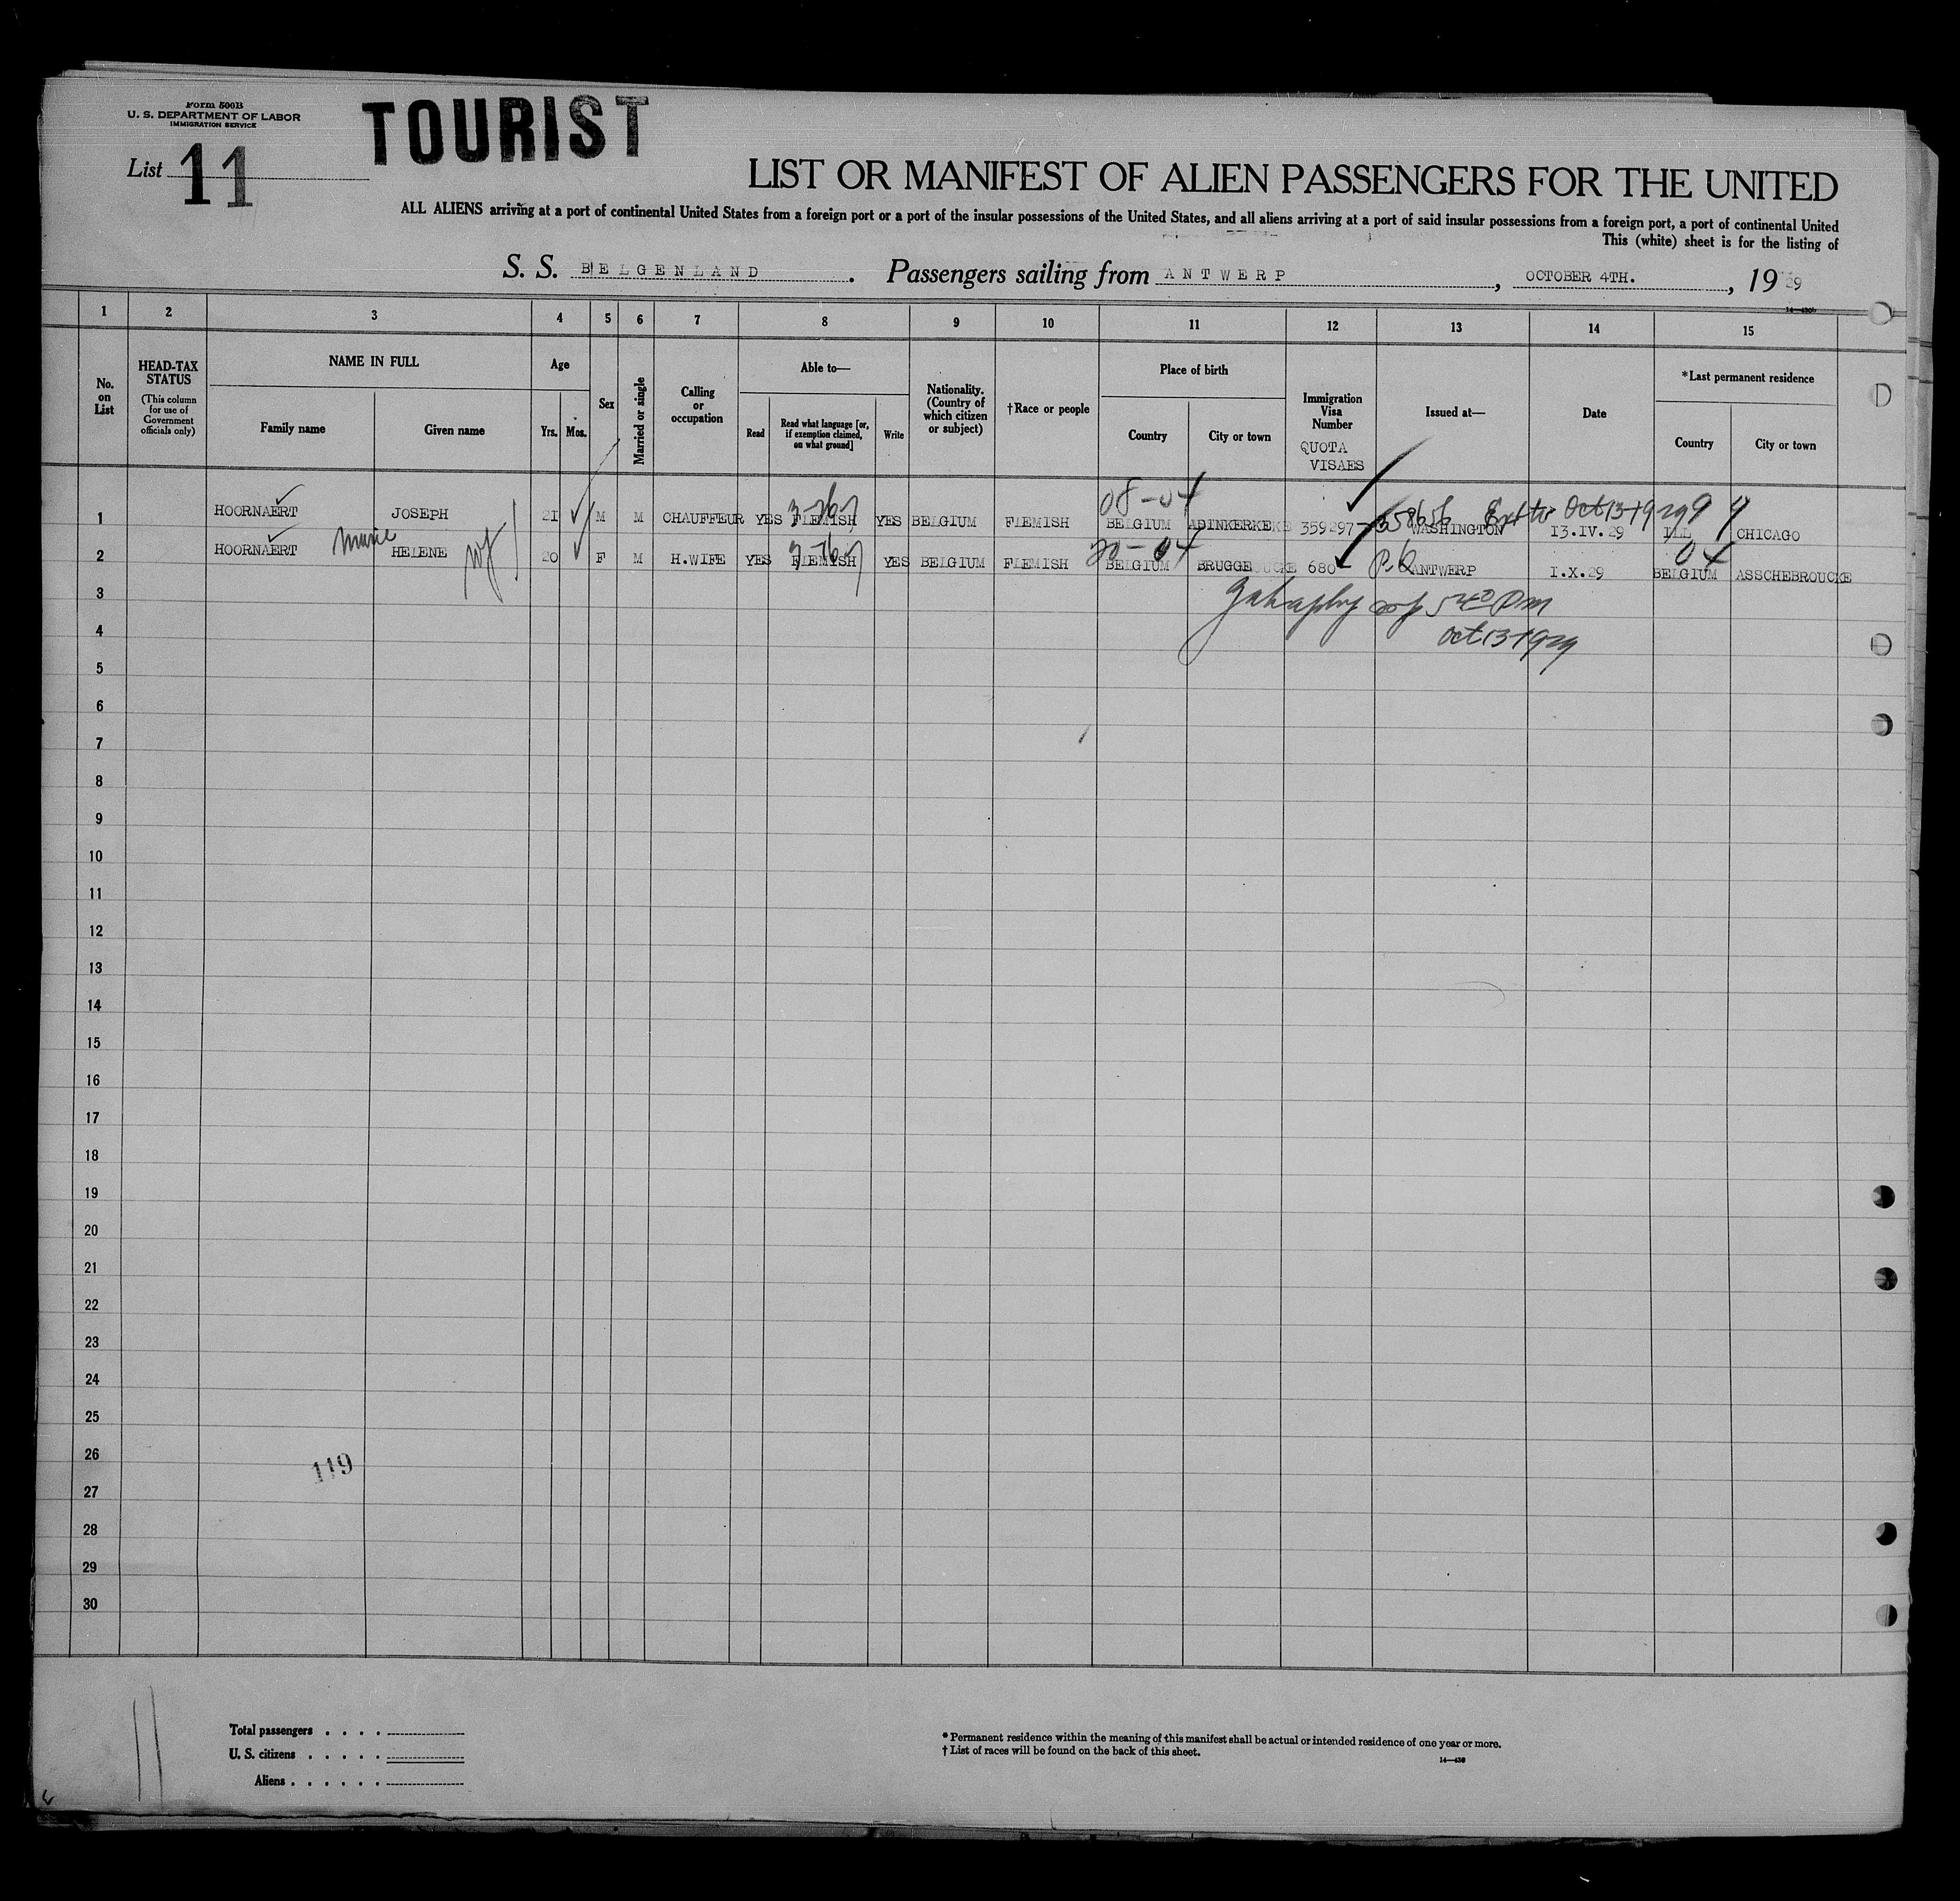 Form 500B
U. S. DEPARTMENT OF LABOR
IMMIGRATION SERVICE
TOURIST
List 11
LIST OR MANIFEST OF ALIEN PASSENGERS FOR THE UNITED
ALL ALIENS arriving at a port of continental United States from a foreign port or a port of the insular possessions of the United States, and all aliens arriving at a port of said insular possessions from a foreign port, a port of continental United
This (white) sheet is for the listing of
S. S. BELGENLAND. Passengers sailing from ANTWERP, OCTOBER 4TH., 1929
1 2 3 4 5 6 7 8 9 10 11 12 13 14 15
No. on List
HEAD-TAX STATUS
(This column for use of Government officials only)
NAME IN FULL
Family name
Given name
Age
Yrs.
Mos.
Sex
Married or single
Calling or occupation
Able to—
Read
Read what language [or, if exemption claimed, on what ground]
Write
Nationality. (Country of which citizen or subject)
†Race or people
Place of birth
Country
City or town
Immigration Visa Number
QUOTA VISAES
Issued at—
Date
*Last permanent residence
Country
City or town
08-04
Ext to Oct 13-1929
1 HOORNAERT JOSEPH 21 M M CHAUFFEUR YES FLEMISH YES BELGIUM FLEMISH BELGIUM ADINKERKE 359297 WASHINGTON 13.IV.29 ILL CHICAGO
Marie
20-04
04
2 HOORNAERT HELENE 20 F M H.WIFE YES FLEMISH YES BELGIUM FLEMISH BELGIUM BRUGGE 680 ANTWERP I.X.29 BELGIUM ASSCHEBROUCKE
3
5 40 Pm
4
Oct 13-1929
5
6
7
8
9
10
11
12
13
14
15
16
17
18
19
20
21
22
23
24
25
26
119
27
28
29
30
Total passengers . . . .
U. S. citizens . . . . .
Aliens . . . . . .
* Permanent residence within the meaning of this manifest shall be actual or intended residence of one year or more.
† List of races will be found on the back of this sheet.
14—430